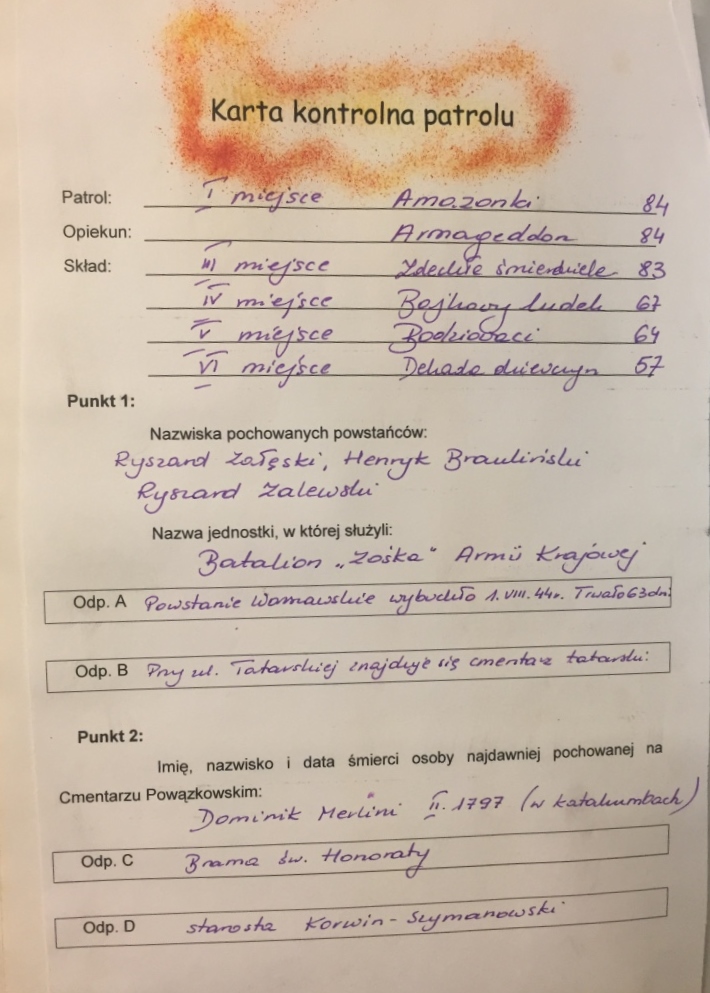 Karta kontrolna patrolu
Patrol: I miejsce Amazonki 84
Opiekun: Armageddon 84
Skład: III miejsce Zdechłe śmierdziele 83
IV miejsce Bajkowy ludek 67
V miejsce 64
VI miejsce Dekada dziewczyn 57
Punkt 1:
Nazwiska pochowanych powstańców:
Ryszard Załęski, Henryk Brauliński
Ryszard Zalewski
Nazwa jednostki, w której służyli:
Batalion „Zośka" Armii Krajowej
Odp. A Powstanie Warszawskie wybuchło 1.VIII.44r. Trwało 63 dni
Odp. B Przy ul. Tatarskiej znajduje się cmentarz tatarski.
Punkt 2:
Imię, nazwisko i data śmierci osoby najdawniej pochowanej na
Cmentarzu Powązkowskim:
Dominik Merlini II.1797 (w katakumbach)
Odp. C Brama św. Honoraty
Odp. D starosta Korwin-Szymanowski